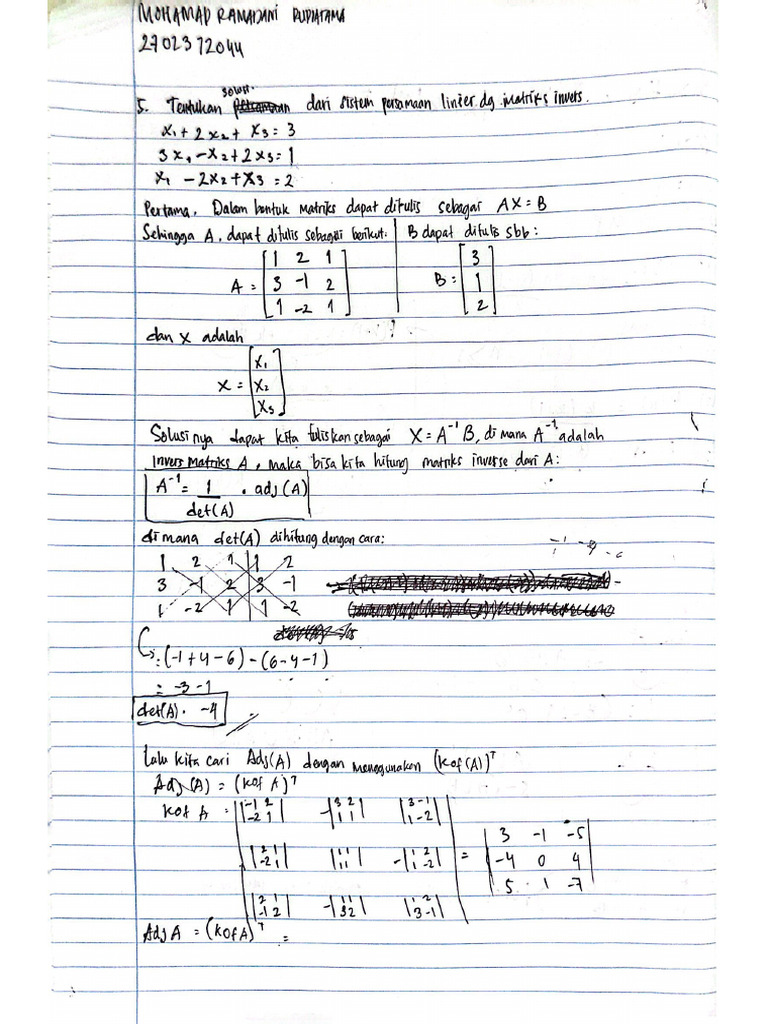 MOHAMAD RAMADANI RUDIATAMA
2702372044
solusi
5. Tentukan dari sistem persamaan linier dg matriks invers.
x₁ + 2x₂ + x₃ = 3
3x₁ - x₂ + 2x₃ = 1
x₁ - 2x₂ + x₃ = 2
Pertama, Dalam bentuk matriks dapat ditulis sebagai AX = B
Sehingga A, dapat ditulis sebagai berikut: | B dapat ditulis sbb:
A = [1 2 1 | B = [3
3 -1 2 | 1
1 -2 1] | 2]
dan x adalah
X = [x₁
x₂
x₃]
Solusinya dapat kita tuliskan sebagai X = A⁻¹B, di mana A⁻¹ adalah
Invers Matriks A, maka bisa kita hitung matriks inverse dari A:
A⁻¹ = 1/det(A) . adj(A)
di mana det(A) dihitung dengan cara:
1 2 1 | 1 2
3 -1 2 | 3 -1
1 -2 1 | 1 -2
= (-1+4-6) - (6-4-1)
= -3-1
det(A) = -4
Lalu kita cari Adj(A) dengan menggunakan (Kof(A))ᵀ
Adj(A) = (Kof A)ᵀ
Kof A = | |-1 2; -2 1| -|3 2; 1 1| |3 -1; 1 -2| | = | 3 -1 -5 |
|2 1; -2 1| |1 1; 1 1| -|1 2; 1 -2| | -4 0 4 |
|2 1; -1 2| -|1 1; 3 2| |1 2; 3 -1| | 5 1 -7 |
Adj A = (Kof A)ᵀ =